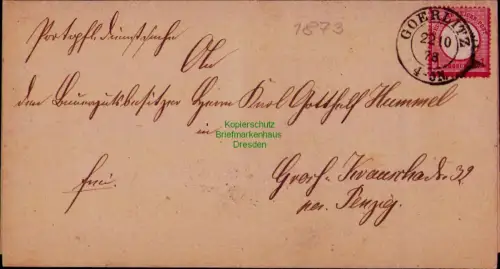 1873
Portopfl. Dienstsache
An
den Bauergutsbesitzer Herrn Karl Gotthelf Hummel
in
frei.
Gross-Krauscha No 32
per Penzig.
GOERLITZ
22 10
73
Kopierschutz
Briefmarkenhaus
Dresden